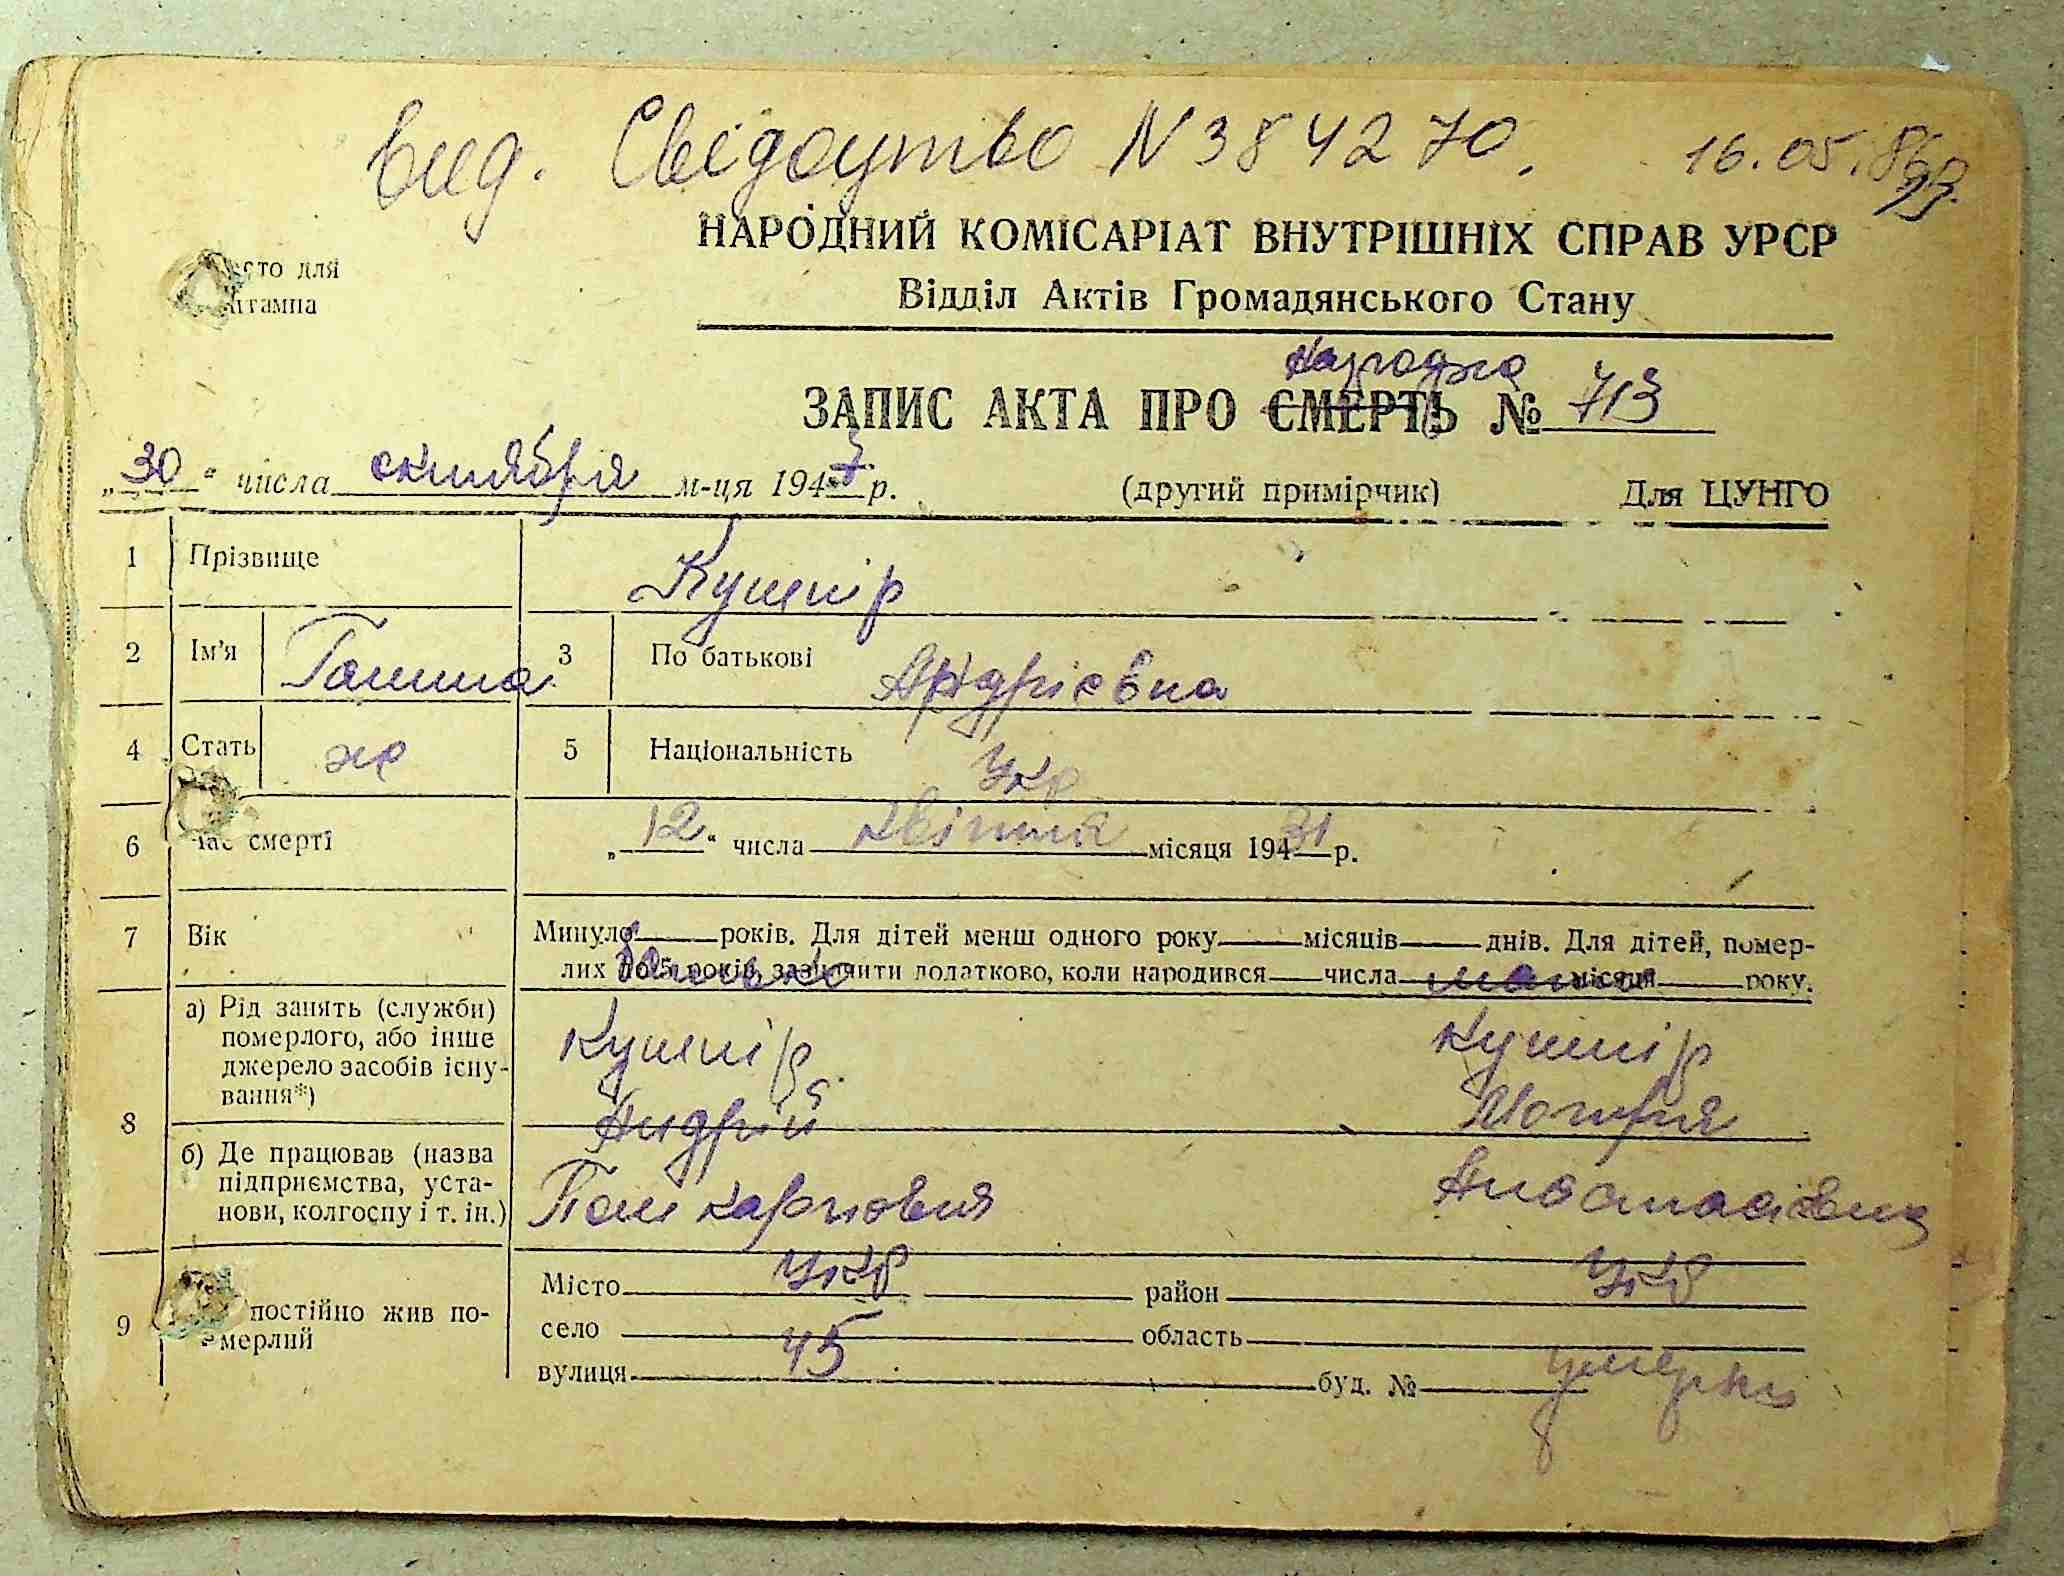 вид. Свідоцтво N 384270. 16.05.86р
НАРОДНИЙ КОМІСАРІАТ ВНУТРІШНІХ СПРАВ УРСР
сто для
штампа
Відділ Актів Громадянського Стану
ЗАПИС АКТА ПРО СМЕРТЬ № 713
„30“ числа октября м-ця 1947 р. (другий примірчик) Для ЦУНГО
1 Прізвище Кушнір
2 Ім'я Ганна 3 По батькові Андрієвна
4 Стать ж 5 Національність Укр
6 Час смерті „12“ числа Квітня місяця 194 31 р.
7 Вік Минуло років. Для дітей менш одного року місяців днів. Для дітей, помер-
лих до 5 років, зазначити додатково, коли народився числа місяця року.
батько мати
8 а) Рід занять (служби)
померлого, або інше
джерело засобів існу-
вання*)
Кушнір Кушнір
Андрій Мотря
б) Де працював (назва
підприємства, уста-
нови, колгоспу і т. ін.)
Полікарпович Анастасівна
9 постійно жив по-
мерлий
Укр Укр
Місто район
село область
45 умерла
вулиця буд. №